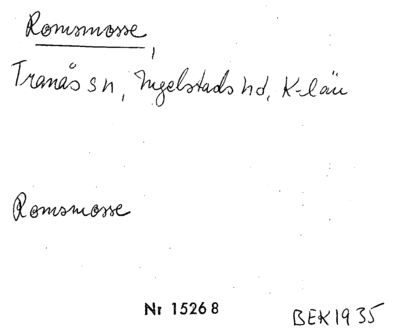 Romsmosse,
Tranås sn, Ingelstads hd, K-län
Romsmosse
Nr 15268
BEK1935